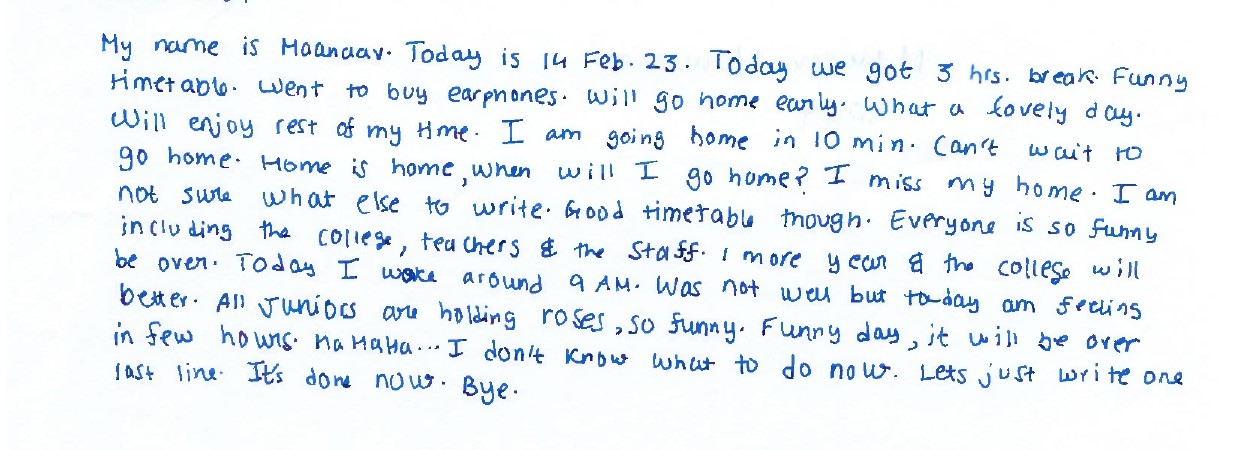 My name is Maanaav. Today is 14 Feb. 23. Today we got 3 hrs. break. Funny
timetable. Went to buy earphones. Will go home early. What a lovely day.
Will enjoy rest of my time. I am going home in 10 min. Can't wait to
go home. Home is home, when will I go home? I miss my home. I am
not sure what else to write. Good timetable though. Everyone is so funny
including the college, teachers & the staff. 1 more year & the college will
be over. Today I woke around 9 AM. Was not well but to-day am feeling
better. All Juniors are holding roses, so funny. Funny day, it will be over
in few hours. Ha HaHa... I don't know what to do now. Lets just write one
last line. It's done now. Bye.